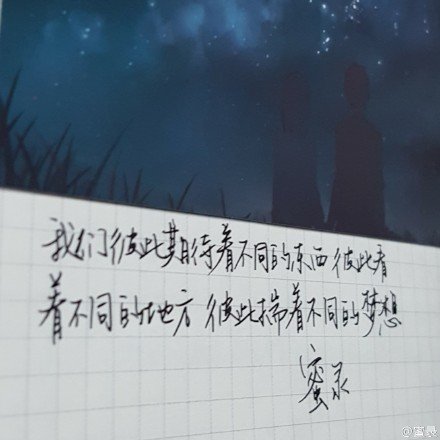 我们彼此期待着不同的东西彼此看
着不同的地方 彼此揣着不同的梦想
蜜录
@蜜录